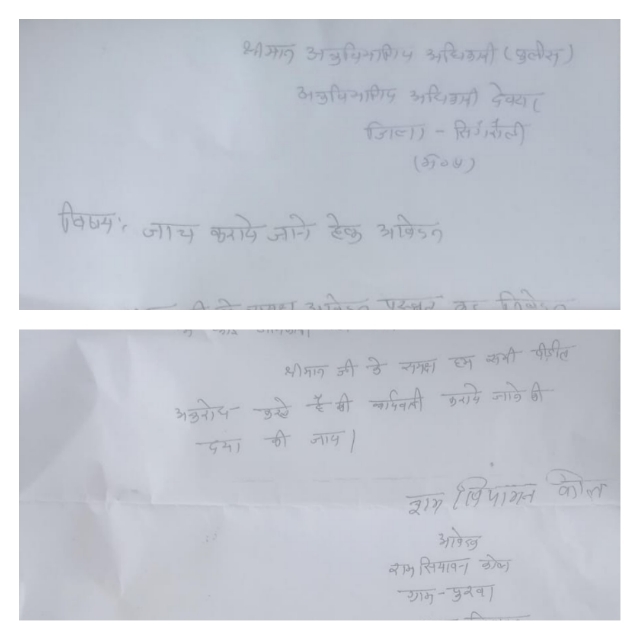 श्रीमान अनुविभागीय अधिकारी (पुलिस)
अनुविभागीय अधिकारी देवसर
जिला - सिंगरौली
(म०प्र)
विषय:, जाच कराये जाने हेतु आवेदन
के समक्ष आवेदन प्रस्तुत कर निवेदन
श्रीमान जी के समक्ष हम सभी पीड़ित
अनुरोध करते है की कार्यवाही कराये जाने की
दया की जाय।
राम सियावन कोल
आवेदक
राम सियावन कोल
ग्राम - पुरवा